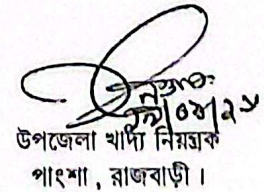 উপজেলা খাদ্য নিয়ন্ত্রক
পাংশা, রাজবাড়ী।